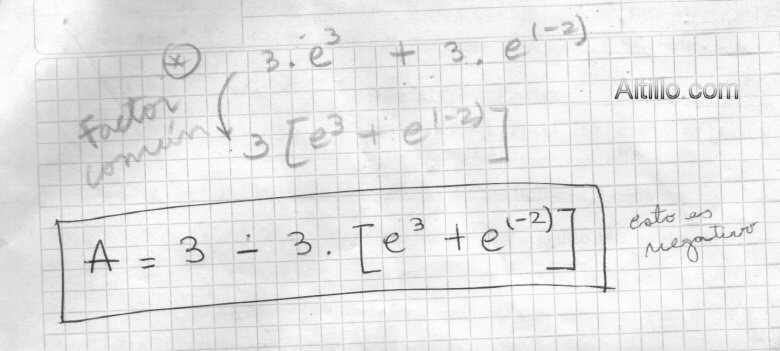 * 3 . e³ + 3 . e⁽⁻²⁾
Altillo.com
Factor común
3 [e³ + e⁽⁻²⁾]
A = 3 - 3 . [e³ + e⁽⁻²⁾]
esto es
negativo